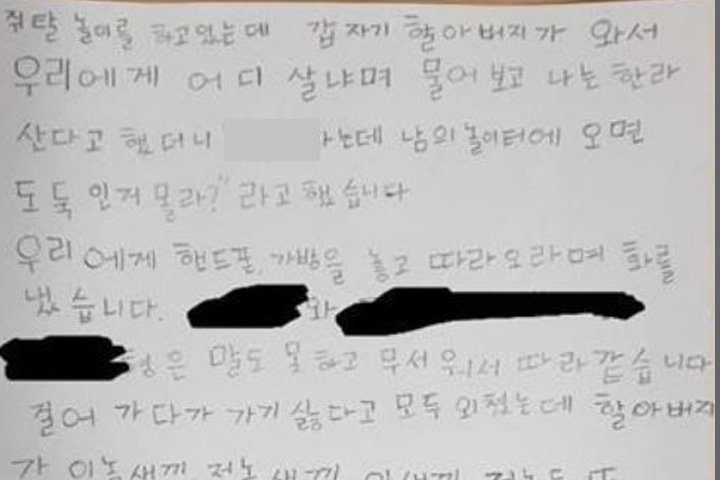 쥐탈 놀이를 하고있는데 갑자기 할아버지가 와서
우리에게 어디 살냐며 물어보고 나는 한라
산다고 했더니 사는데 남의놀이터에 오면
도둑인거 몰라?" 라고 했습니다
우리에게 핸드폰, 가방을 놓고 따라오라며 화를
냈습니다. 와
형은 말도 못하고 무서워서 따라갔습니다
걸어가다가 가기싫다고 모두 외쳤는데 할아버지
가 이놈새끼 저놈새끼